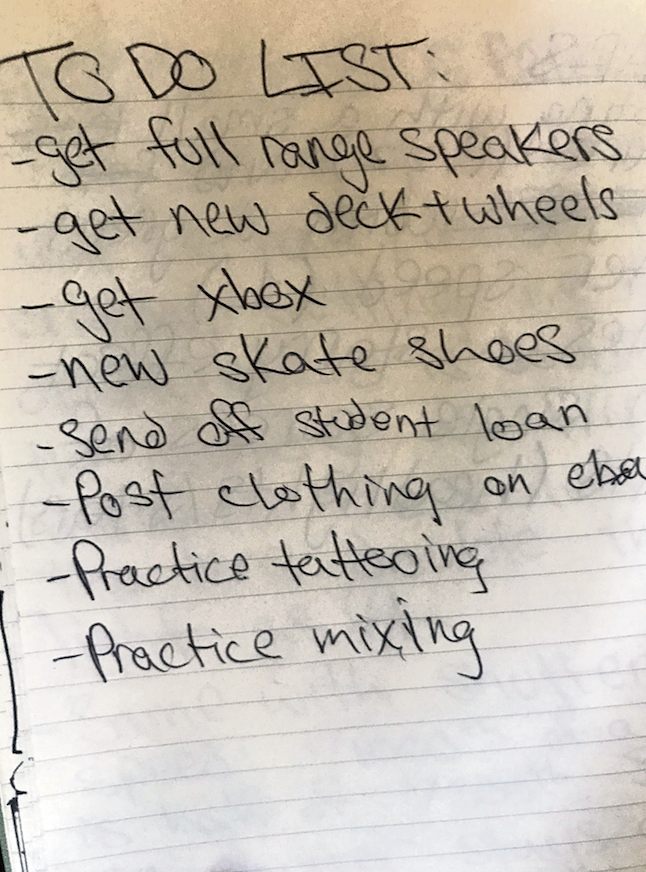 TO DO LIST:
-get full range speakers
-get new deck + wheels
-get xbox
-new skate shoes
-send off student loan
-Post clothing on eba
-Practice tattooing
-Practice mixing